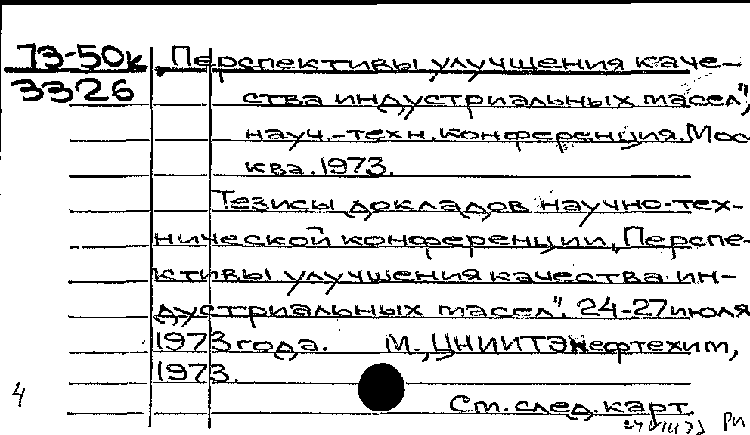 73-50к
3326
„Перспективы улучшения каче-
ства индустриальных масел",
науч.-техн. конференция. Мос
ква. 1973.
Тезисы докладов научно-тех-
нической конференции „Перспе-
ктивы улучшения качества ин-
дустриальных масел". 24-27 июля
1973 года. М., ЦНИИТЭнефтехим,
1973.
4
См. след. карт.